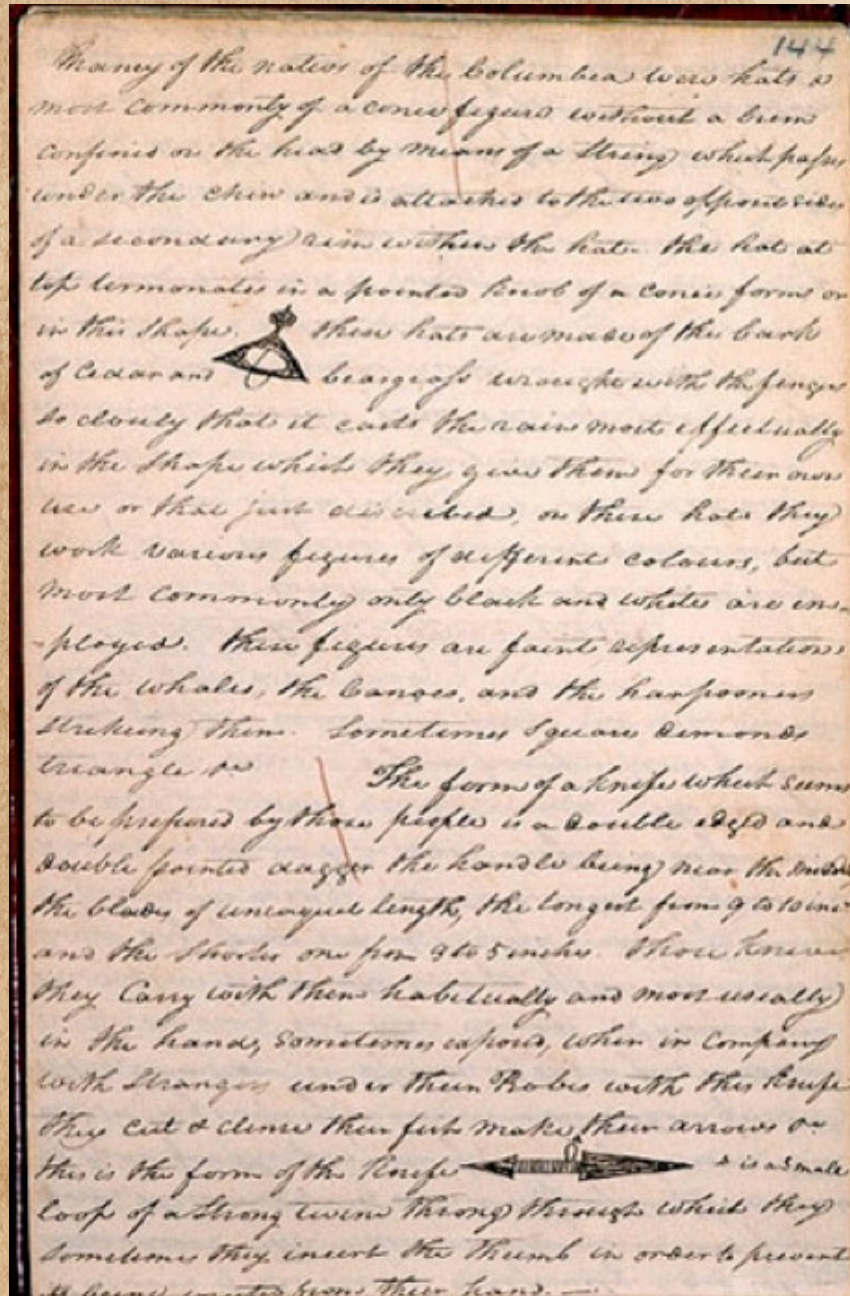 144
Maney of the nativs of the Columbia were hats &
most commonly of a conic figure without a brim
confined on the head by means of a String which passes
under the chin and is attached to the two opposit sides
of a secondary rim within the hat. the hat at
top termonates in a pointed knob of a conic form or
in this Shape. these hats are made of the bark
of Cedar and beargrass wrought with the fingers
so closely that it casts the rain most effectually
in the Shape which they give them for their own
use or that just discribed, on these hats they
work various figures of different colours, but
most commonly only black and white are em-
ployed. these figures are faint representations
of the whales, the Canoes, and the harpooners
strikeing them. Sometimes Square dimonds
triangle &c
The form of a knife which Seems
to be prepared by those people is a double edged and
double pointed dagger the handle being near the middle
the blades of unequel length, the longest from 9 to 10 inc
and the Shorter one from 3 to 5 inches. those knives
they Carry with them habitually and most usually
in the hand, Sometimes exposed, when in Company
with Strangers under their Robes with this knife
they cut & clense their fish make their arrows &c
this is the form of the Knife A is a Small
loop of a Strong twine throng through which they
Sometimes they incert the thumb in order to prevent
it being wrested from their hand. —